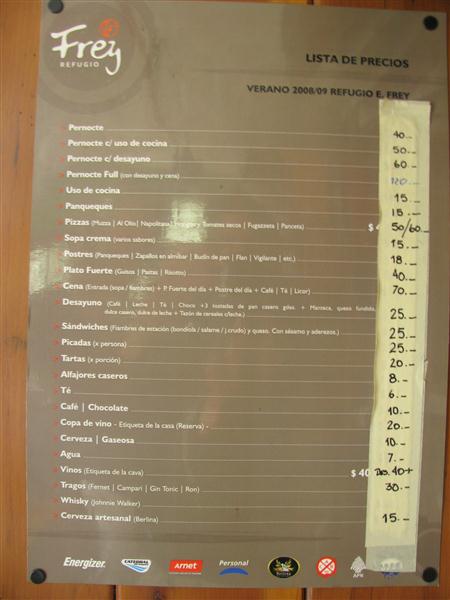 Frey
REFUGIO
LISTA DE PRECIOS
VERANO 2008/09 REFUGIO E. FREY
Pernocte 40.-
Pernocte c/ uso de cocina 50.-
Pernocte c/ desayuno 60.-
Pernocte Full (con desayuno y cena) 120.-
Uso de cocina 15.-
Panqueques 15.-
Pizzas (Muzza | Al Olio| Napolitana| Hongos y Tomates secos | Fugazzeta | Panceta) $ 50/60.-
Sopa crema (varios sabores) 15.-
Postres (Panqueques | Zapallos en almíbar | Budín de pan | Flan | Vigilante | etc.) 18.-
Plato Fuerte (Guisos | Pastas | Risotto) 40.-
Cena (Entrada (sopa / fiambres) + P. Fuerte del día + Postre del día + Café | Té | Licor) 70.-
Desayuno (Café | Leche | Té | Choco +3 tostadas de pan casero gdes. + Manteca, queso fundido,
dulce casero, dulce de leche + Tazón de cereales c/leche.) 25.-
Sándwiches (Fiambres de estación (bondiola / salame / j.crudo) y queso. Con sésamo y aderezos.) 25.-
Picadas (x persona) 25.-
Tartas (x porción) 20.-
Alfajores caseros 8.-
Té 6.-
Café | Chocolate 10.-
Copa de vino - Etiqueta de la casa (Reserva) - 20.-
Cerveza | Gaseosa 10.-
Agua 7.-
Vinos (Etiqueta de la cava) $ 40 40+
Tragos (Fernet | Campari | Gin Tonic | Ron) 30.-
Whisky (Johnnie Walker)
Cerveza artesanal (Berlina) 15.-
Energizer. CATEDRAL Arnet Personal Berlina APN